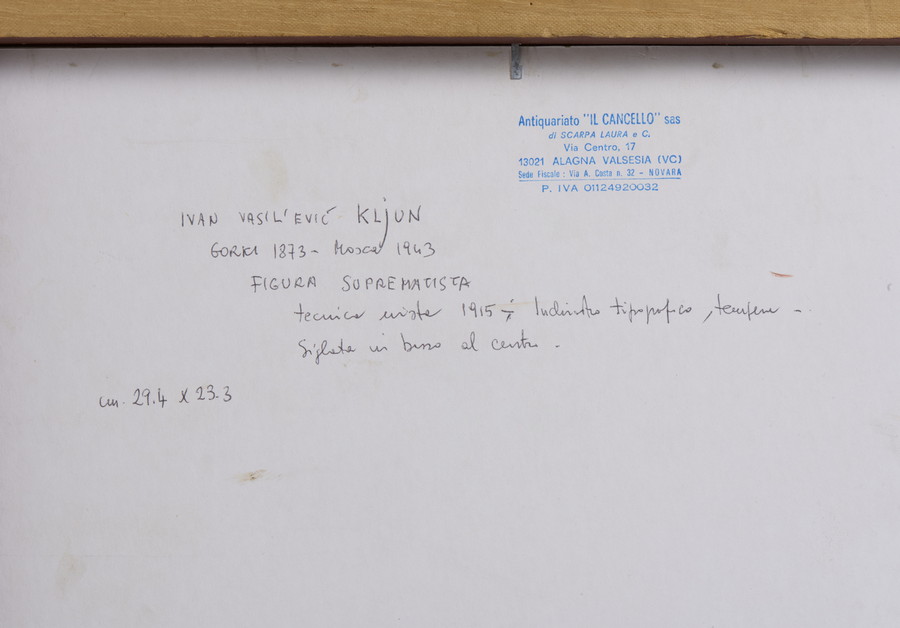 Antiquariato "IL CANCELLO" sas
di SCARPA LAURA e C.
Via Centro, 17
13021 ALAGNA VALSESIA (VC)
Sede Fiscale : Via A. Costa n. 32 - NOVARA
P. IVA 01124920032
IVAN VASIL'EVIČ KLjUN
GORKI 1873 - Mosca 1943
FIGURA SUPREMATISTA
tecnica mista 1915 Inchiostro tipografico, tempera -
Siglata in basso al centro -
cm. 29.4 X 23.3